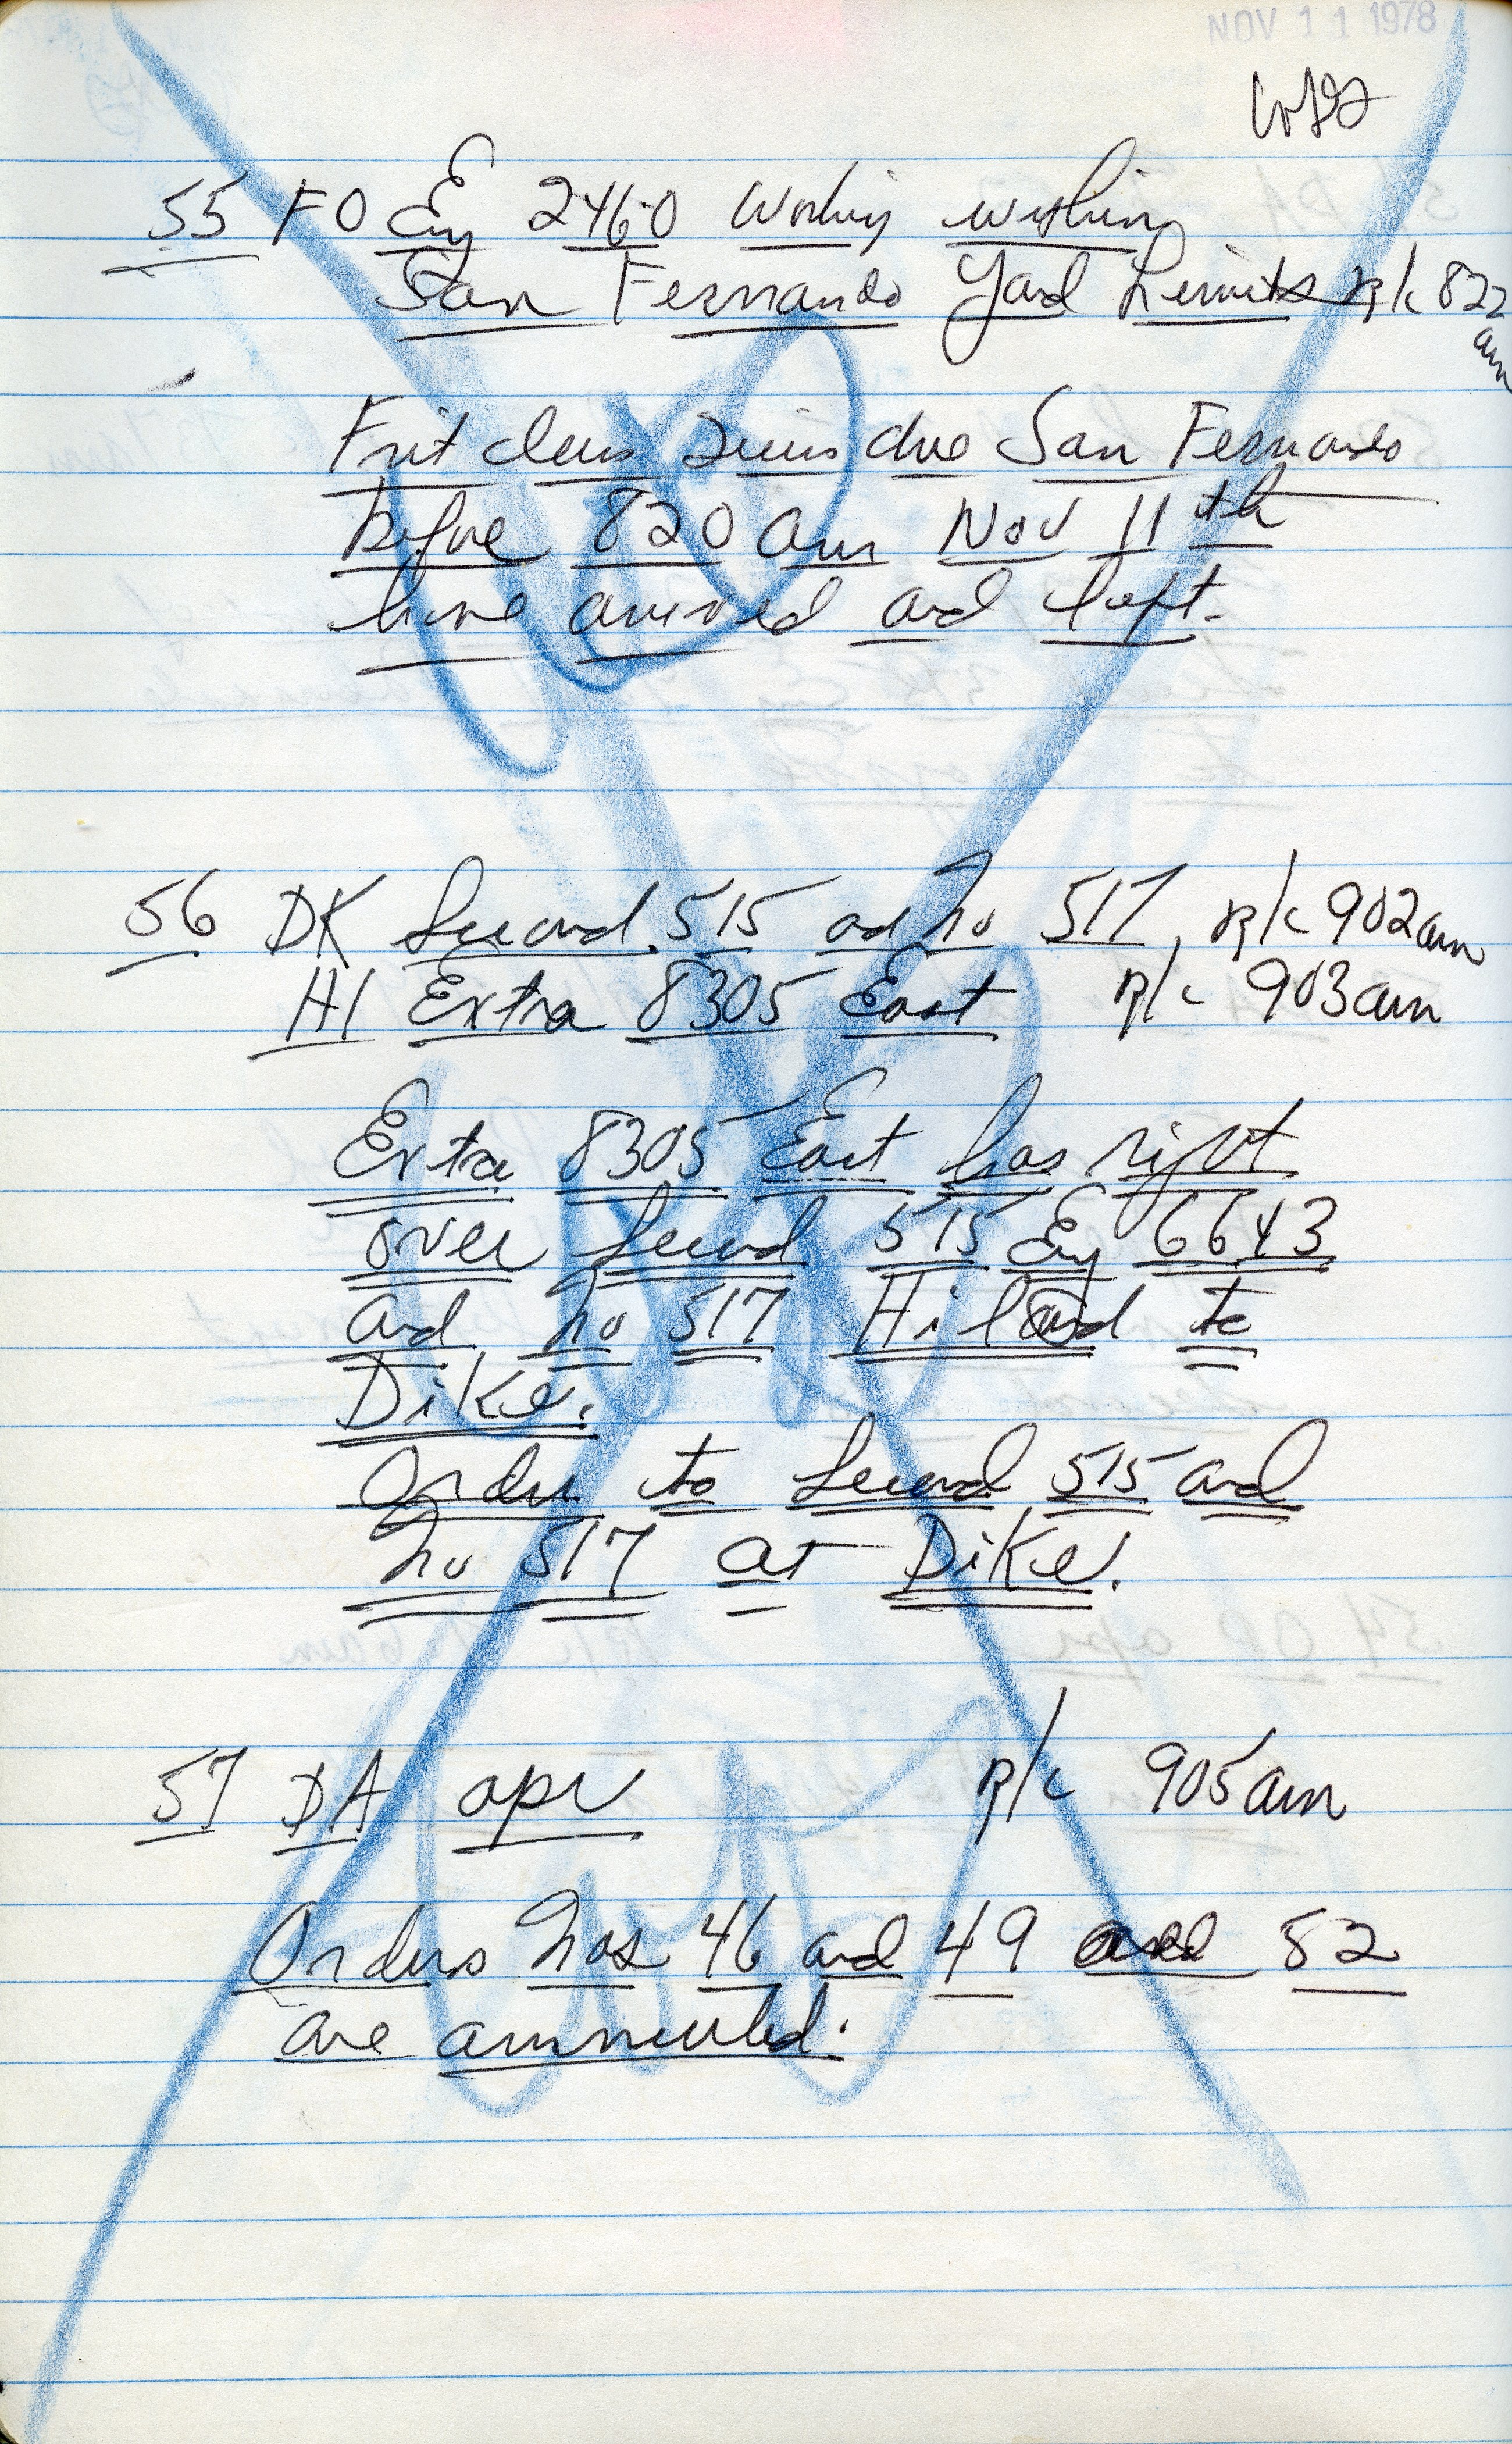 NOV 11 1978
55 FO Eng 2460 Working within
San Fernando Yard Limits R/c 822
am
First class trains due San Fernando
before 820 am Nov 11th
have arrived and left.
56 DK Second 515 and No 517, R/c 902am
HI Extra 8305 East R/c 903am
Extra 8305 East has right
over Second 515 Eng 6643
and No 517 Hiland to
Dike.
Order to Second 515 and
No 517 at Dike.
57 DA opr R/c 905am
Orders Nos 46 and 49 and 52
are annulled.